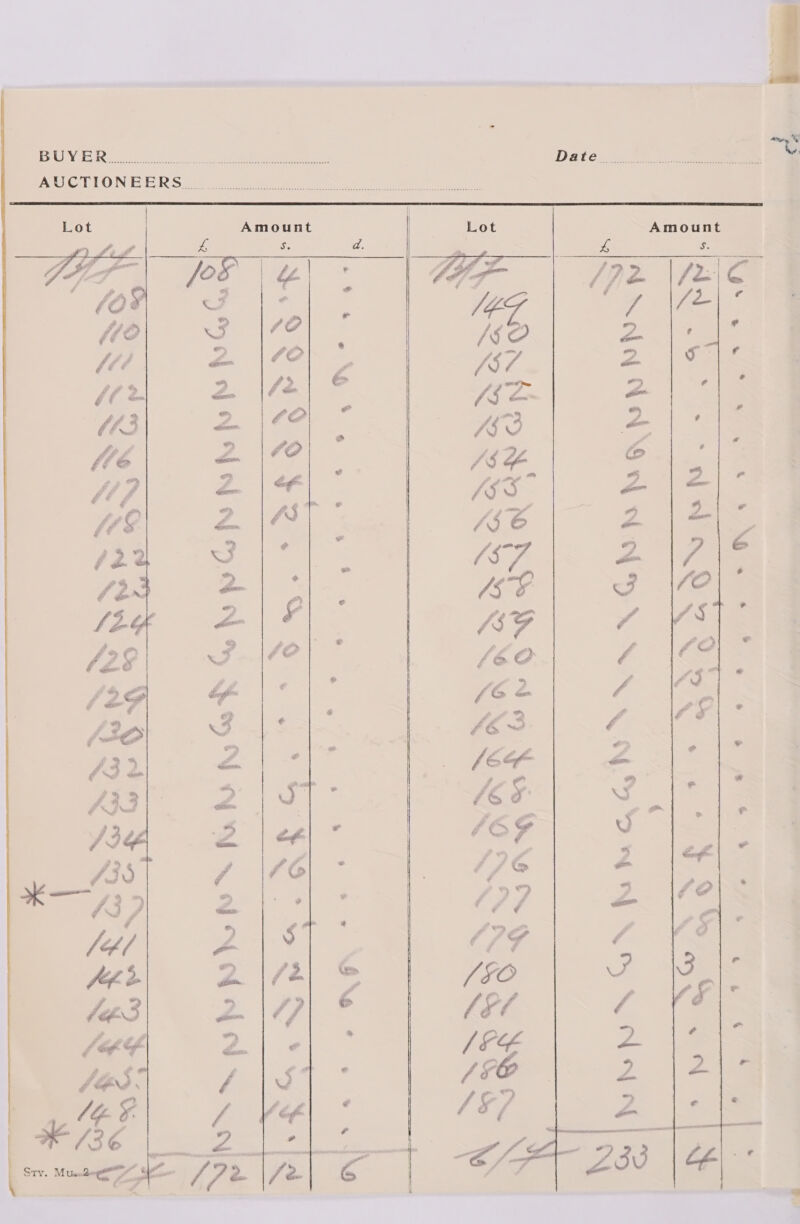 BUYER Date
AUCTIONEERS
Lot Amount Lot Amount
£ s. d. £ s.
B/F 108 4 · B/F 172 12 6
108 3 · · 149 1 12 ·
110 3 10 · 150 2 · ·
111 2 10 · 151 2 5 ·
112 2 12 6 152 2 · ·
113 2 10 · 153 2 · ·
116 2 10 · 154 6 · ·
117 2 4 · 155 2 2 ·
118 2 15 · 156 2 2 ·
122 3 · · 157 2 7 6
123 2 · · 158 3 10 ·
124 2 8 · 159 1 15 ·
128 3 10 · 160 1 10 ·
129 4 · · 162 1 15 ·
130 3 · · 163 1 18 ·
132 2 · · 164 2 · ·
133 2 5 · 168 3 · ·
134 2 4 · 169 5 · ·
135 1 16 · 176 2 4 ·
*— 137 2 · · 177 2 10 ·
141 2 5 · 179 1 18 ·
142 2 12 6 180 3 3 ·
143 2 17 6 181 1 18 ·
144 2 · · 184 2 · ·
145 1 5 · 186 2 2 ·
148 1 14 · 187 2 · ·
* 136 2 · ·
Sty. C/F 172 12 6 C/F 233 4 ·